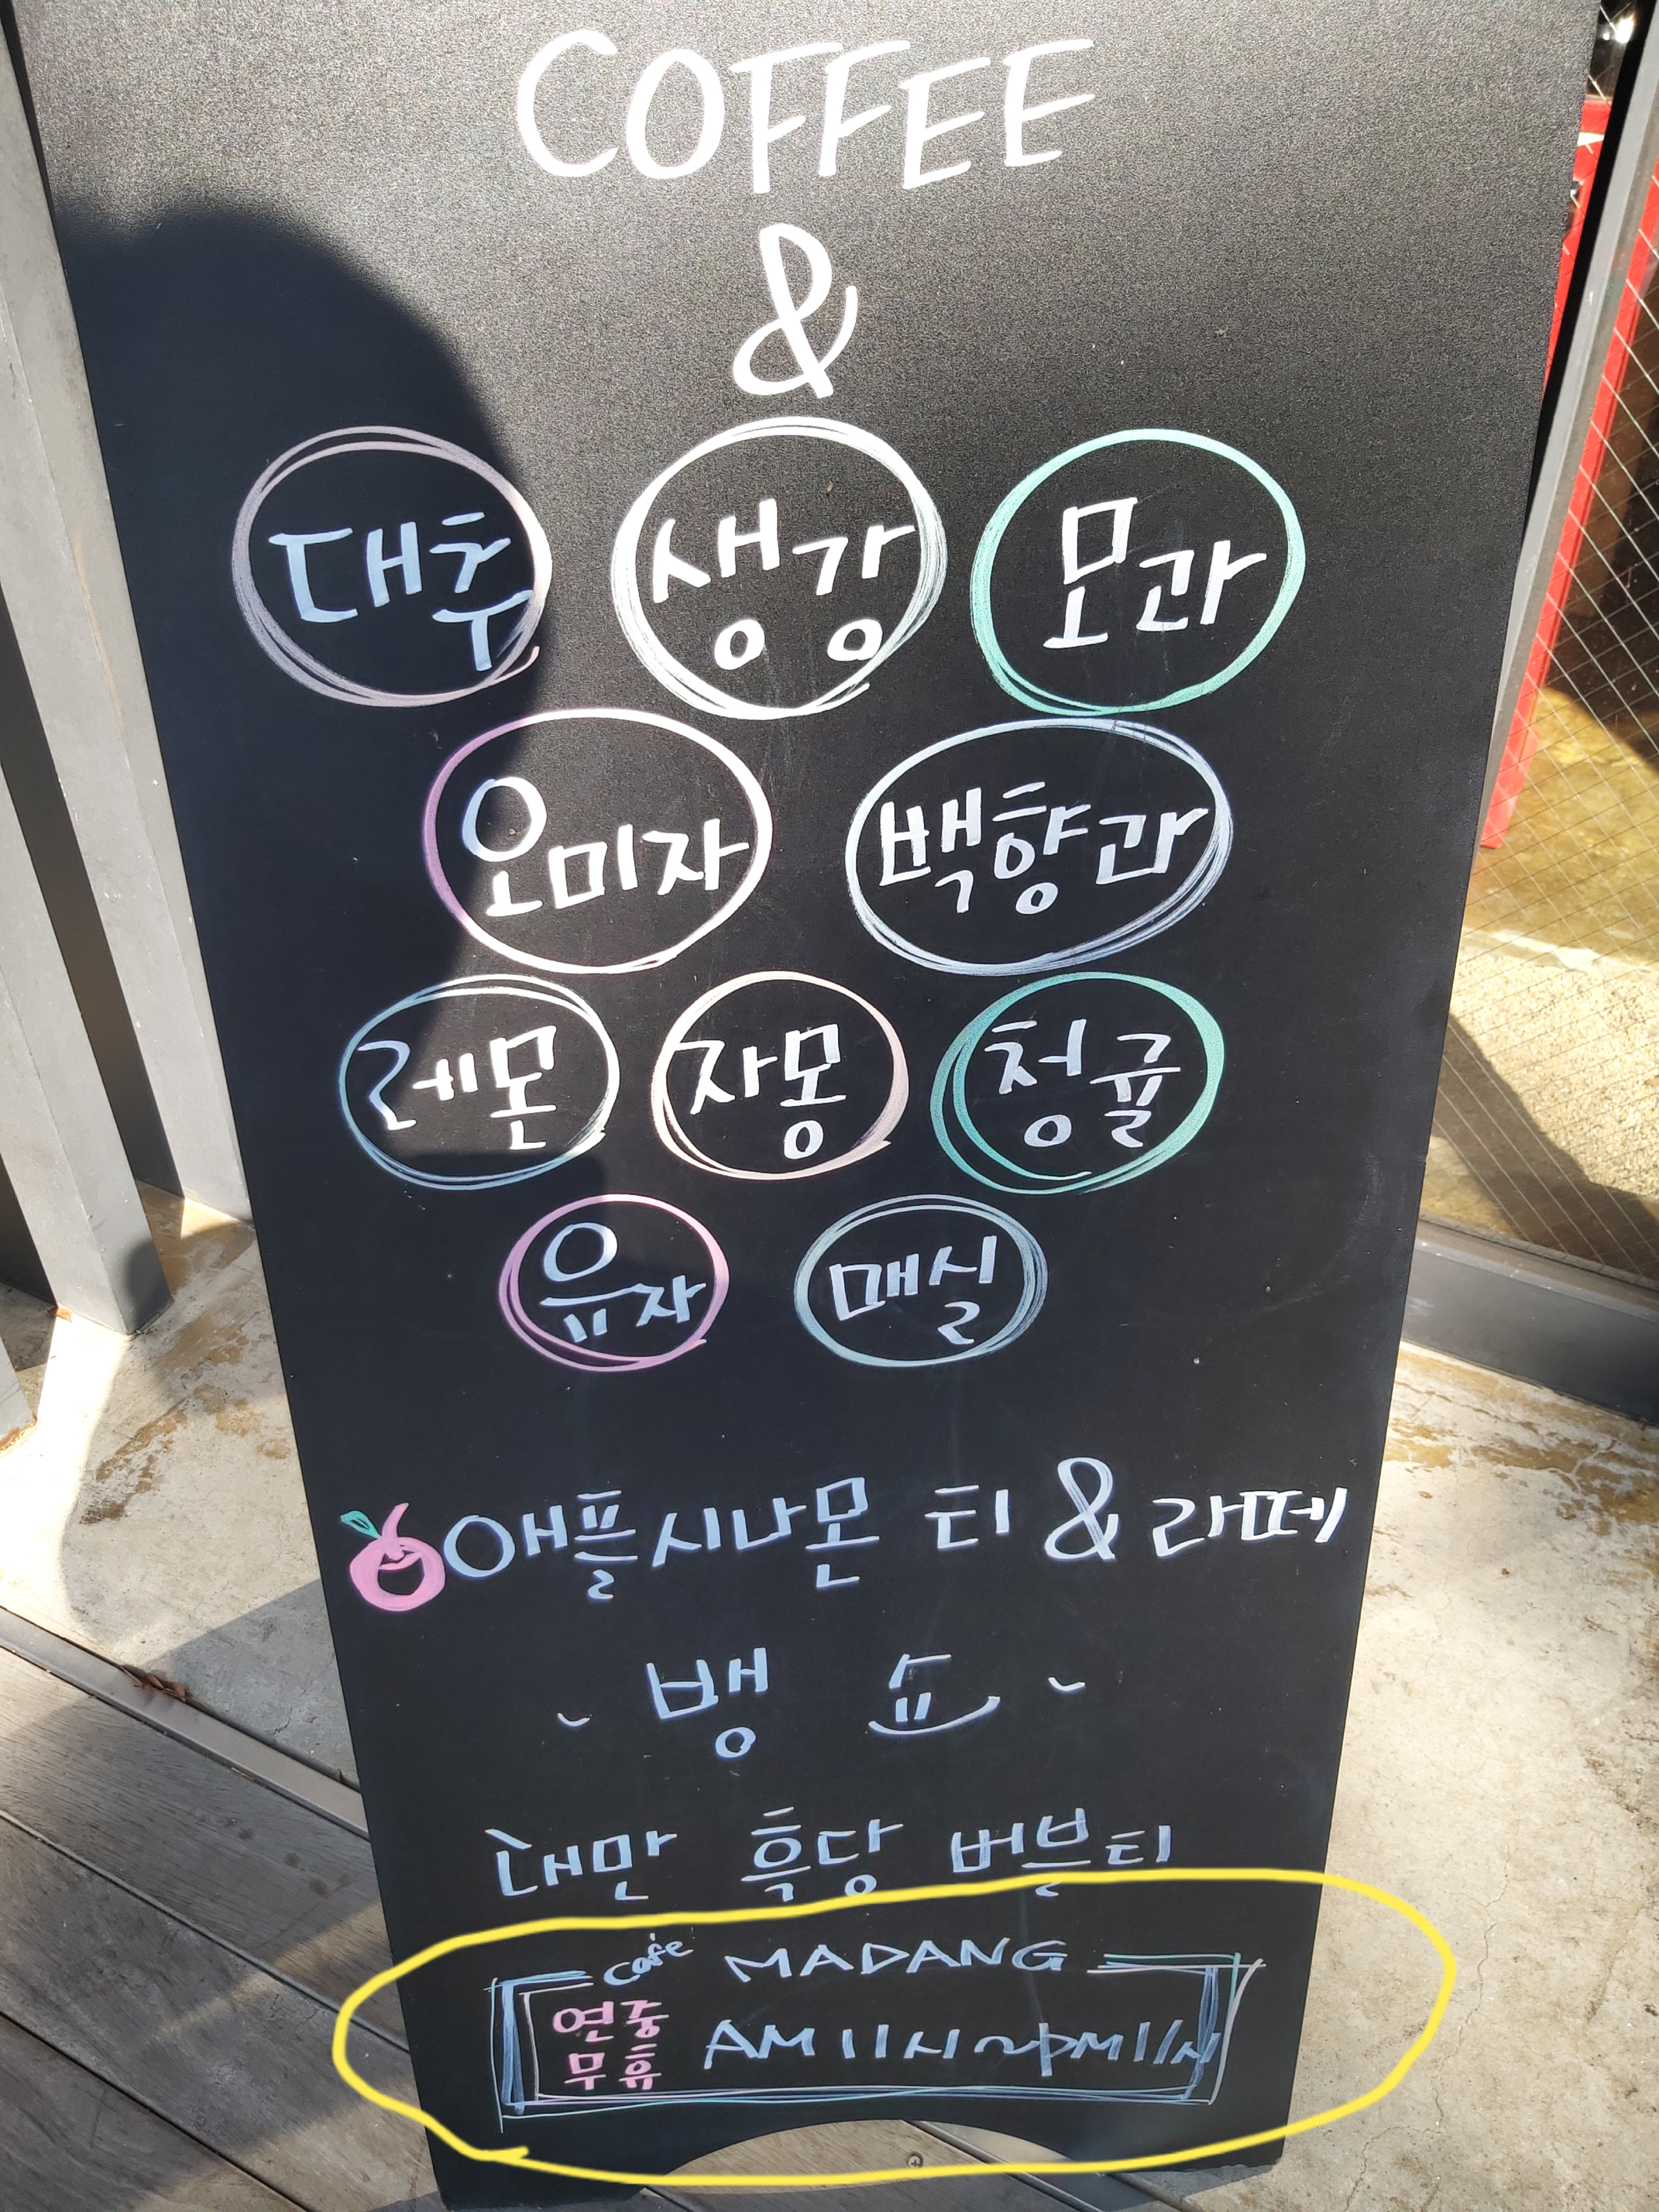 COFFEE
&
대추 생강 모과
오미자 백향과
레몬 자몽 청귤
유자 매실
애플시나몬 티 & 라떼
뱅 쇼
대만 흑당 버블티
Cafe MADANG
연중
무휴 AM 11시~PM 11시